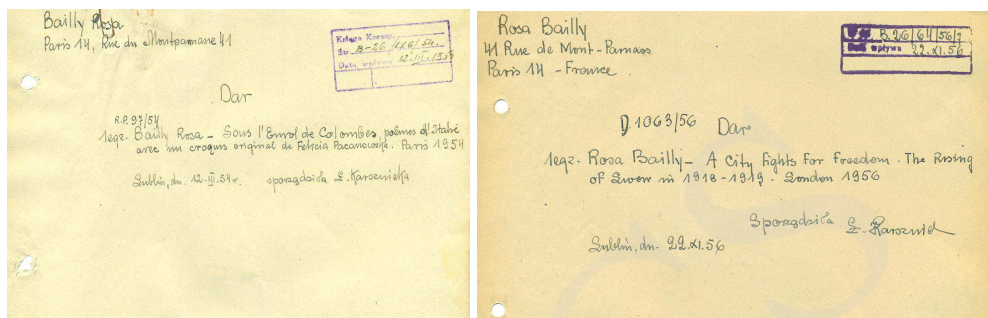 Bailly Rosa
Paris 14, Rue du Montparnasse 41
Księga Koresp.
Str. B-26/
Data wpływu 12.III.
Dar
R.P. 97/54
1 egz. Bailly Rosa – Sous l'Envol de Colombes, poèmes d'Italie
avec un croquis original de Felicia Pacanowska. Paris 1954
Lublin, dn. 12.III.54 r. sporządziła Ł. Karsznicka
Rosa Bailly
41 Rue de Mont-Parnass
Paris 14 – France
B.26/64/56/7
Data wpływu 22.XI.56
D.1063/56 Dar
1 egz. Rosa Bailly – A City fights for freedom. The Rising
of Lwow in 1918-1919 - London 1956
Sporządziła
Lublin, dn. 22.XI.56